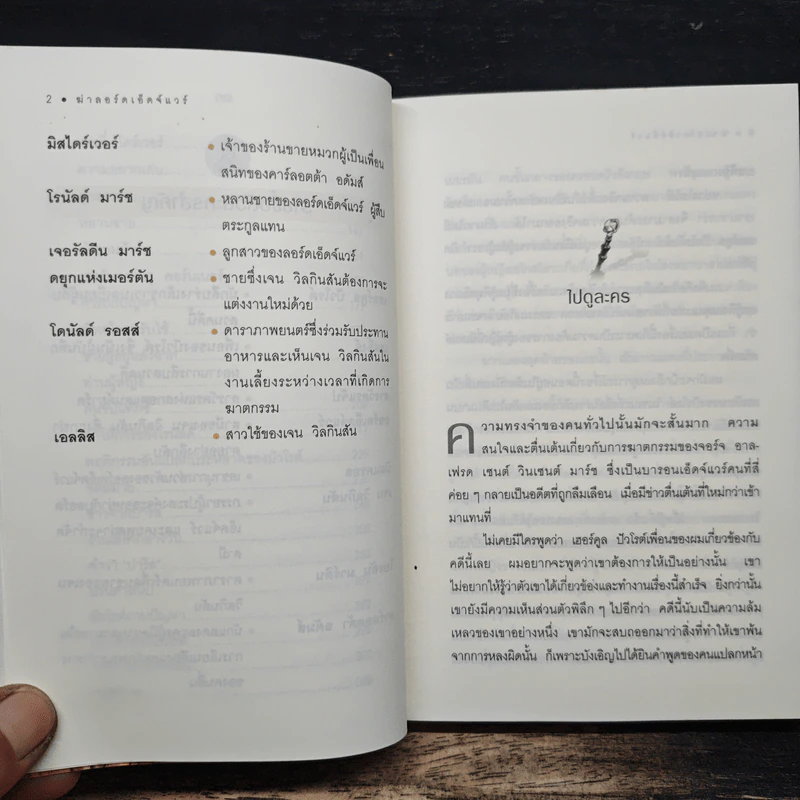 2 • ฆ่าลอร์ดเอ็ดจ์แวร์
มิสไดร์เวอร์ • เจ้าของร้านขายหมวกผู้เป็นเพื่อน
สนิทของคาร์ลอตต้า อดัมส์
โรนัลด์ มาร์ช • หลานชายของลอร์ดเอ็ดจ์แวร์ ผู้สืบ
ตระกูลแทน
เจอรัลดีน มาร์ช • ลูกสาวของลอร์ดเอ็ดจ์แวร์
ดยุกแห่งเมอร์ตัน • ชายซึ่งเจน วิลกินสันต้องการจะ
แต่งงานใหม่ด้วย
โดนัลด์ รอสส์ • ดาราภาพยนตร์ซึ่งร่วมรับประทาน
อาหารและเห็นเจน วิลกินสันใน
งานเลี้ยงระหว่างเวลาที่เกิดการ
ฆาตกรรม
เอลลิส • สาวใช้ของเจน วิลกินสัน
ไปดูละคร
ความทรงจำของคนทั่วไปนั้นมักจะสั้นมาก ความ
สนใจและตื่นเต้นเกี่ยวกับการฆาตกรรมของจอร์จ อาล-
เฟรด เซนต์ วินเซนต์ มาร์ช ซึ่งเป็นบารอนเอ็ดจ์แวร์คนที่สี่
ค่อย ๆ กลายเป็นอดีตที่ถูกลืมเลือน เมื่อมีข่าวตื่นเต้นที่ใหม่กว่าเข้า
มาแทนที่
ไม่เคยมีใครพูดว่า เฮอร์คูล ปัวโรต์เพื่อนของผมเกี่ยวข้องกับ
คดีนี้เลย ผมอยากจะพูดว่าเขาต้องการให้เป็นอย่างนั้น เขา
ไม่อยากให้รู้ว่าตัวเขาได้เกี่ยวข้องและทำงานเรื่องนี้สำเร็จ ยิ่งกว่านั้น
เขายังมีความเห็นส่วนตัวพิลึก ๆ ไปอีกว่า คดีนี้นับเป็นความล้ม
เหลวของเขาอย่างหนึ่ง เขามักจะสบถออกมาว่าสิ่งที่ทำให้เขาพ้น
จากการหลงผิดนั้น ก็เพราะบังเอิญไปได้ยินคำพูดของคนแปลกหน้า